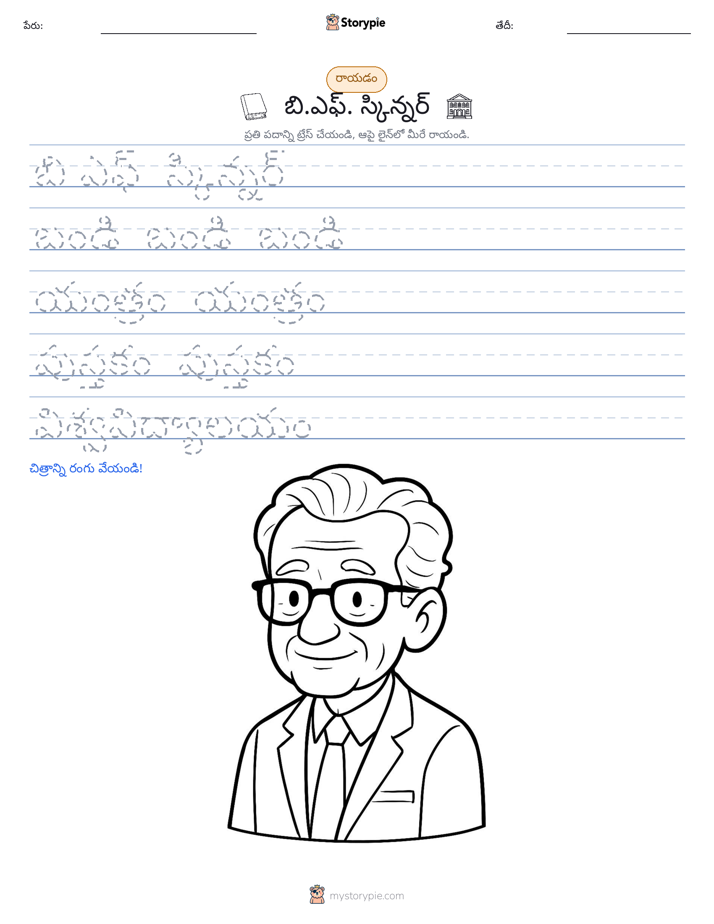 పేరు:
Storypie
తేదీ:
రాయడం
బి.ఎఫ్. స్కిన్నర్
ప్రతి పదాన్ని ట్రేస్ చేయండి, ఆపై లైన్‌లో మీరే రాయండి.
బి ఎఫ్ స్కిన్నర్
బండి బండి బండి
యంత్రం యంత్రం
పుస్తకం పుస్తకం
విశ్వవిద్యాలయం
చిత్రాన్ని రంగు వేయండి!
mystorypie.com